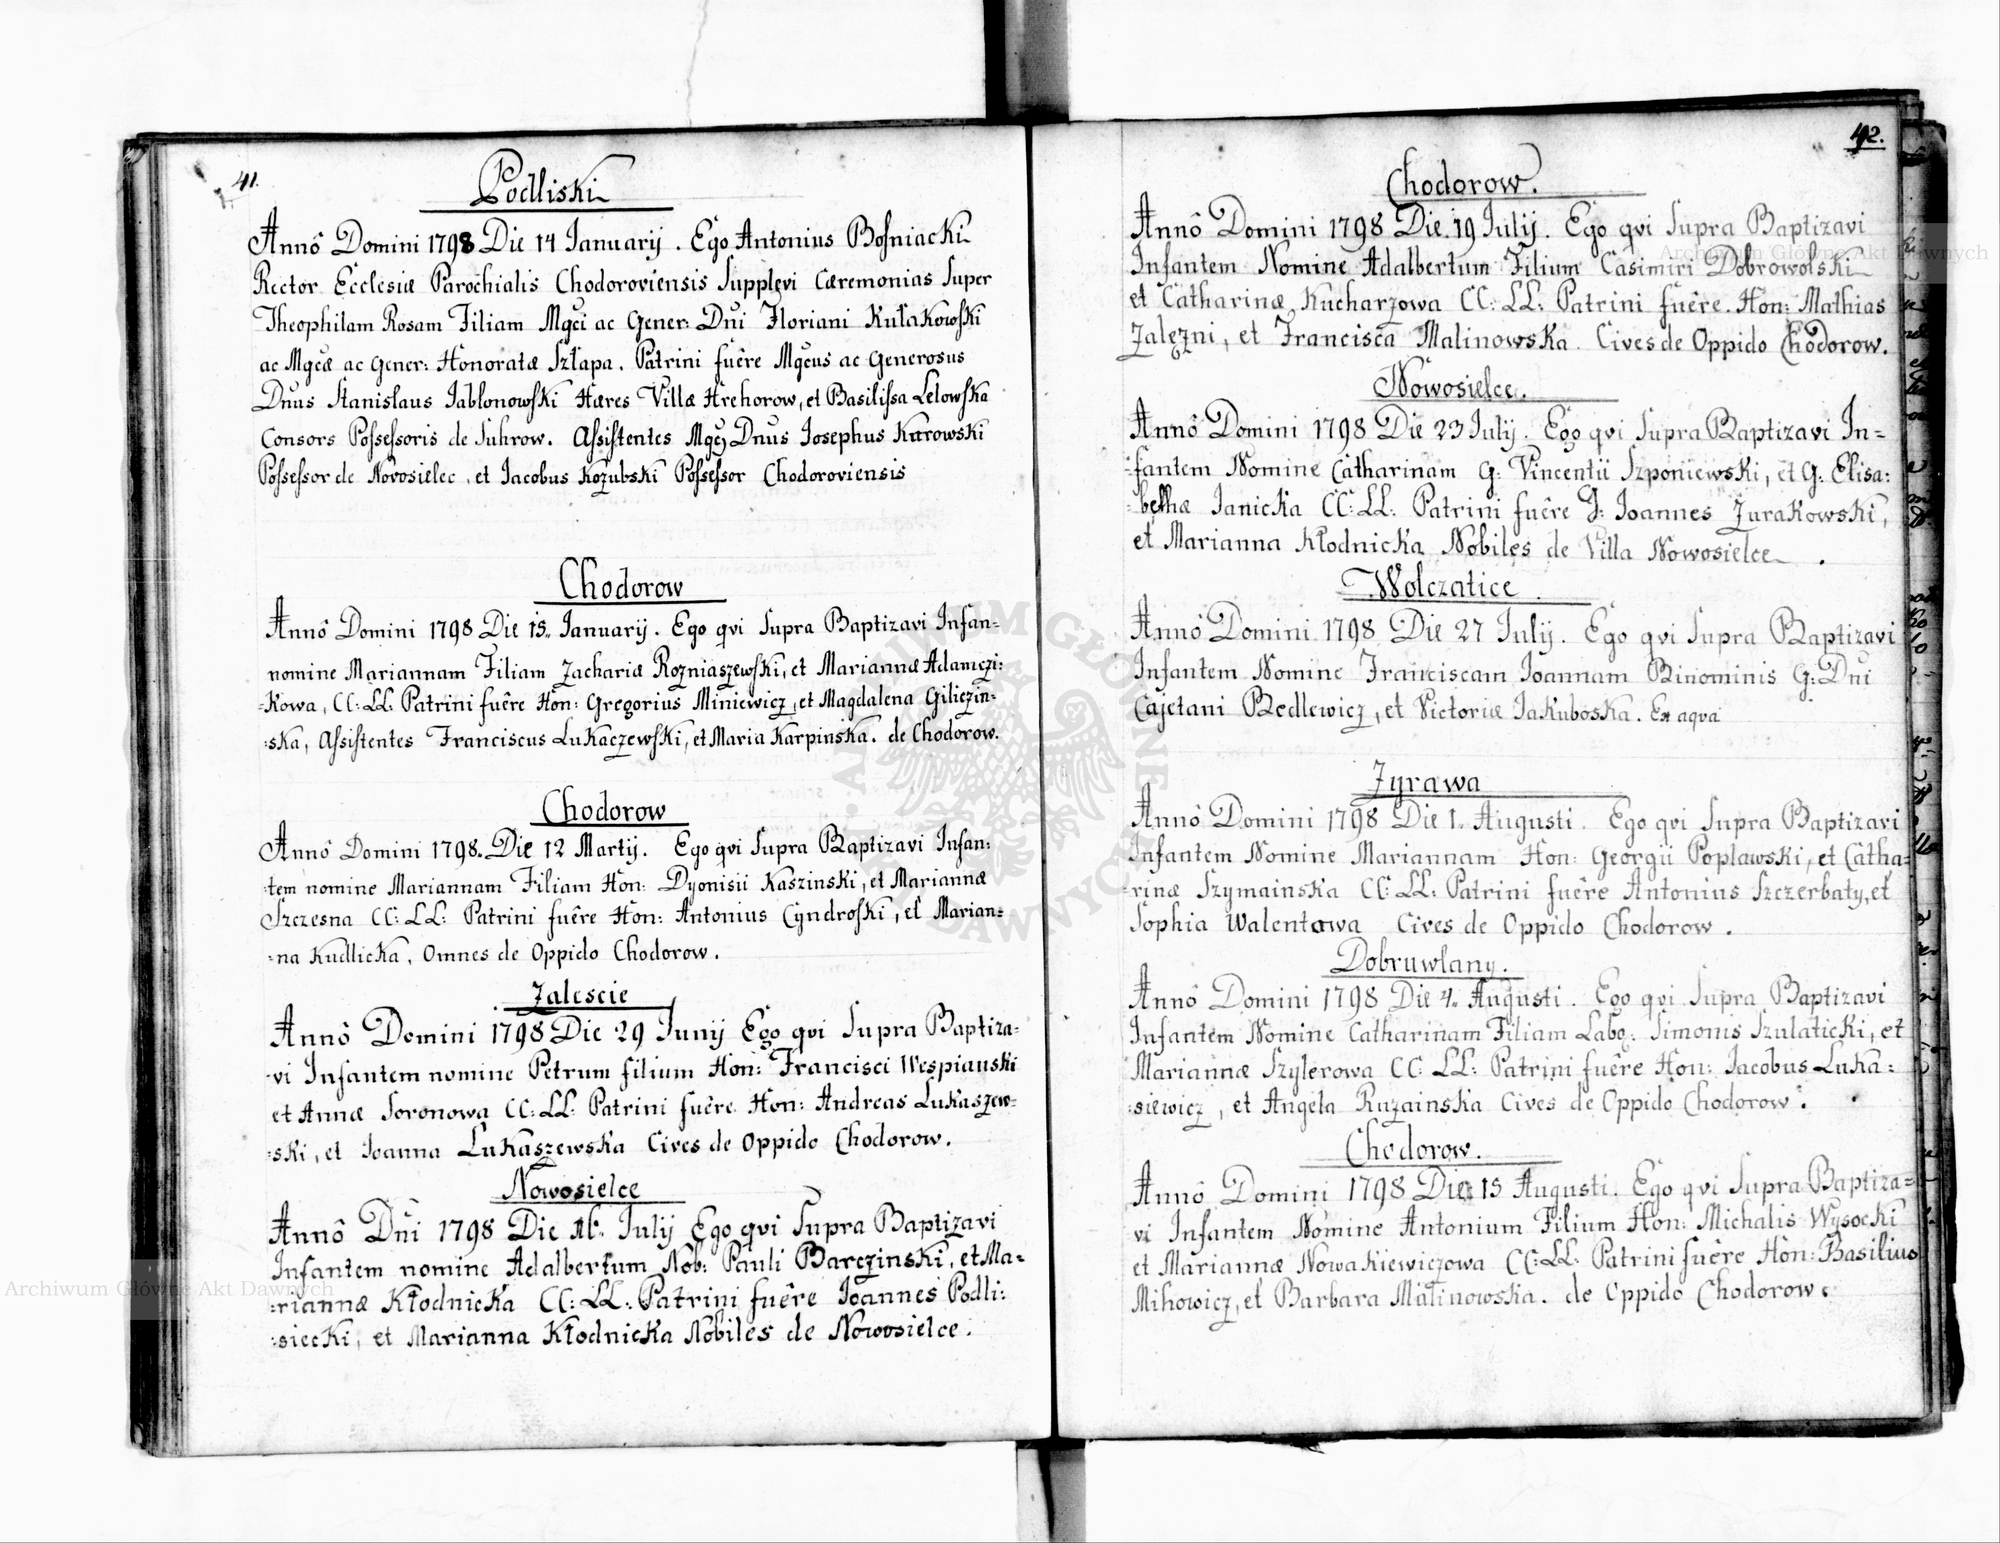 41.
Podliski
Annô Domini 1798 Die 14 Januarij. Ego Antonius Bosniacki
Rector Ecclesiæ Parochialis Chodoroviensis Supplevi Cæremonias Super
Theophilam Rosam Filiam Mgci ac Gener: Dni Floriani Kułakowski
ac Mgcæ ac Gener: Honoratæ Szłapa. Patrini fuêre Mgcus ac Generosus
Dnus Stanislaus Jabłonowski Hæres Villæ Hrehorow, et Basilissa Lelowska
Consors Possessoris de Suhrow. Assistentes Mgcj Dnus Josephus Kurowski
Possessor de Novosielec, et Jacobus Kozubski Possessor Chodoroviensis
Chodorow
Annô Domini 1798 Die 15.. Januarij. Ego qvi Supra Baptizavi Infan=
nomine Mariannam Filiam Zachariæ Rozniaszewski, et Mariannæ Adamczi:
=Kowa, CC: LL: Patrini fuêre Hon: Gregorius Miniewicz, et Magdalena Giliczin=
:ska, Assistentes Franciscus Lukaczewski, et Maria Karpinska. de Chodorow.
Chodorow
Annô Domini 1798. Die 12 Martij. Ego qvi Supra Baptizavi Infan:
:tem nomine Mariannam Filiam Hon: Dyonisii Kaszinski, et Mariannæ
Szczesna CC: LL: Patrini fuêre Hon: Antonius Cyndroski, et Marian=
:na Kudlicka, Omnes de Oppido Chodorow.
Zalescie
Annô Domini 1798 Die 29 Junij Ego qvi Supra Baptiza=
-vi Infantem nomine Petrum filium Hon: Francisci Wespianski
et Annæ Soronowa CC: LL: Patrini fuêre Hon: Andreas Lukaszew=
:ski, et Joanna Lukaszewska Cives de Oppido Chodorow.
Nowosielce
Annô Dñi 1798 Die 16.. Julij Ego qvi Supra Baptizavi
Infantem nomine Adalbertum Nob: Pauli Barczinski, et Ma=
:riannæ Kłodnicka CC: LL: Patrini fuêre Joannes Podli:
:siecki, et Marianna Kłodnicka Nobiles de Nowosielce.
42.
Chodorow.
Annô Domini 1798 Die 19 Julij. Ego qvi Supra Baptizavi
Infantem Nomine Adalbertum Filium Casimiri Dobrowolski
et Catharinæ Kucharzowa CC: LL: Patrini fuêre. Hon: Mathias
Zalezni, et Francisca Malinowska. Cives de Oppido Chodorow.
Nowosielce.
Annô Domini 1798 Die 23 Julij. Ego qvi Supra Baptizavi In=
:fantem Nomine Catharinam G: Vincentii Szponiewski, et G: Elisa:
:bethæ Janicka CC: LL: Patrini fuêre G: Joannes Zurakowski,
et Marianna Kłodnicka Nobiles de Villa Nowosielce.
Wolczatice
Annô Domini 1798 Die 27 Julij. Ego qvi Supra Baptizavi
Infantem Nomine Franciscam Joannam Binominis G: Dni
Cajetani Redlewicz, et Victoriæ Jakuboska. Ex aqva
Zyrawa
Annô Domini 1798 Die 1. Augusti. Ego qvi Supra Baptizavi
Infantem Nomine Mariannam Hon: Georgii Poplawski, et Catha=
:rinæ Szymainska CC: LL: Patrini fuêre Antonius Szczerbaty, et
Sophia Walentowa Cives de Oppido Chodorow.
Dobruwlany.
Annô Domini 1798 Die 4.. Augusti. Ego qvi Supra Baptizavi
Infantem Nomine Catharinam Filiam Labo: Simonis Szulaticki, et
Mariannæ Szylerowa CC: LL: Patrini fuêre Hon: Jacobus Luka:
:siewicz, et Angela Ruzainska Cives de Oppido Chodorow.
Chodorow.
Annô Domini 1798 Die 15 Augusti. Ego qvi Supra Baptiza=
vi Infantem Nomine Antonium Filium Hon: Michalis Wysocki
et Mariannæ Nowakiewiczowa CC: LL: Patrini fuêre Hon: Basilius
Mihowicz, et Barbara Malinowska. de Oppido Chodorow.
Archiwum Główne Akt Dawnych
Archiwum Główne Akt Dawnych
ARCHIWUM GŁÓWNE AKT DAWNYCH